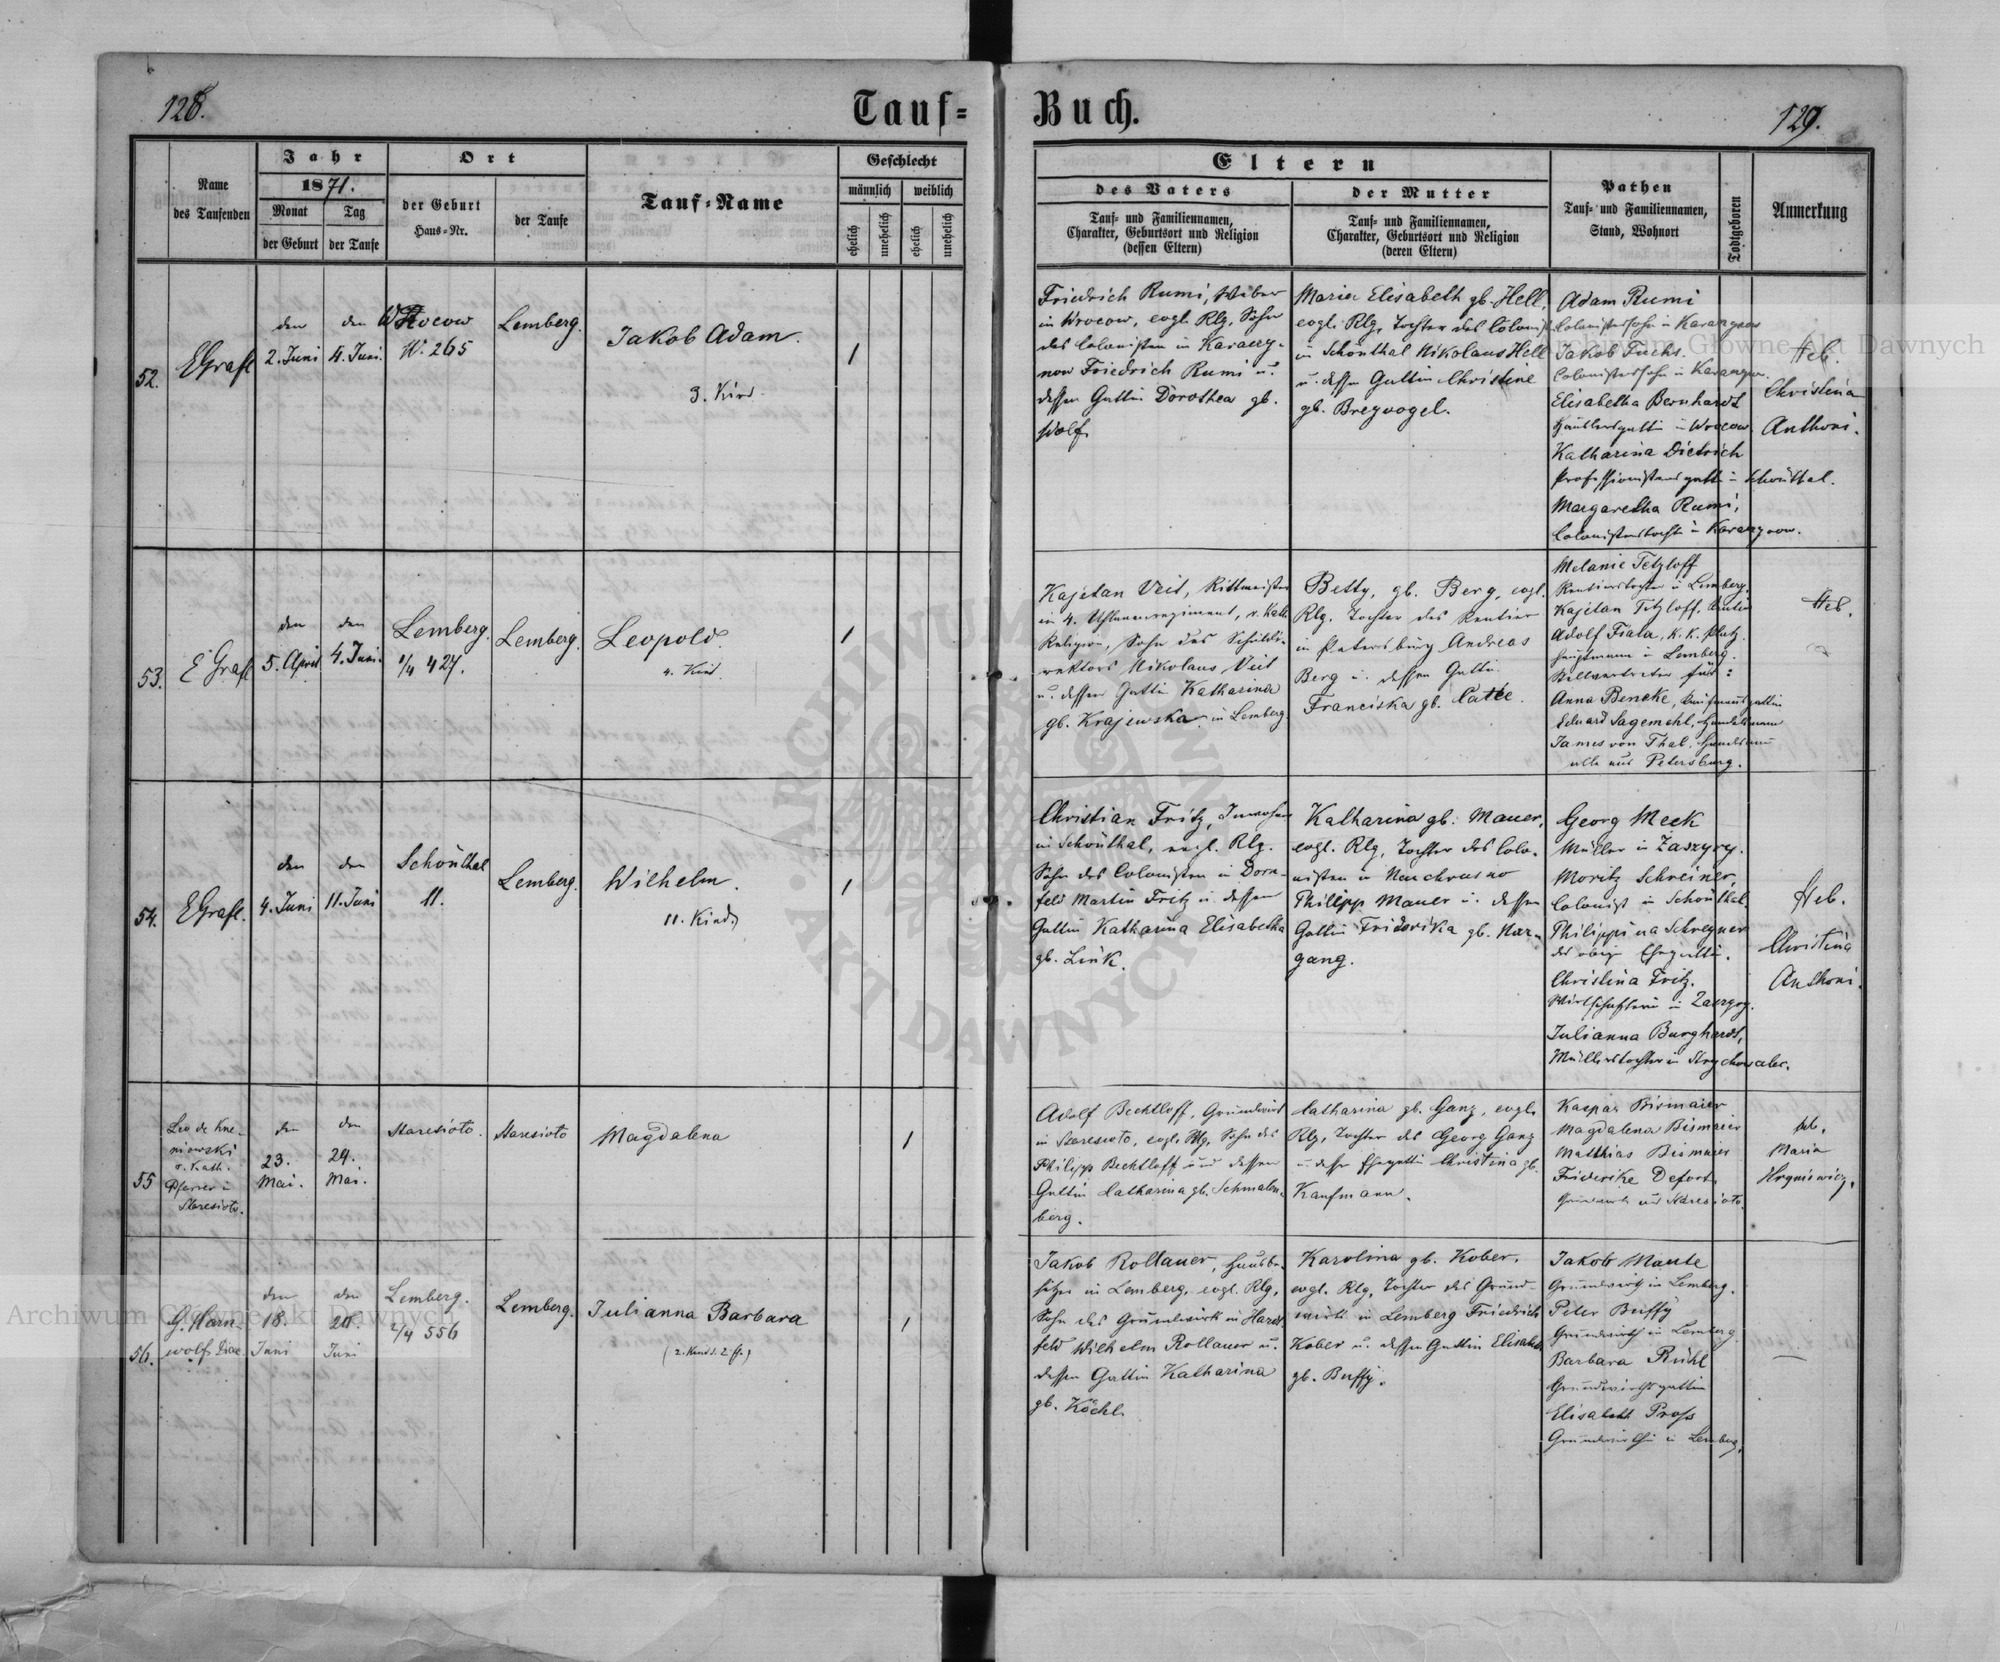 128.
Tauf-
Buch.
129.
Name
des Taufenden
Jahr
1871.
Monat
der Geburt
Tag
der Taufe
Ort
der Geburt
Haus-Nr.
der Taufe
Tauf-Name
Geschlecht
männlich
weiblich
ehelich
unehelich
ehelich
unehelich
Eltern
des Vaters
Tauf- und Familiennamen,
Charakter, Geburtsort und Religion
(dessen Eltern)
der Mutter
Tauf- und Familiennamen,
Charakter, Geburtsort und Religion
(deren Eltern)
Pathen
Tauf- und Familiennamen,
Stand, Wohnort
Todtgeboren
Anmerkung
52.
EGrafl
den
2. Juni
den
4. Juni.
Wrocow
N. 265
Lemberg.
Jakob Adam.
3. Kind.
1
Friedrich Rumi, Weber
in Wrocow, evgl. Rlg, Sohn
des Colonisten in Karaczy-
now Friedrich Rumi u.
dessen Gattin Dorothea gb.
Wolf.
Maria Elisabeth gb. Hell,
evgl. Rlg, Tochter des Colonist
in Schönthal Nikolaus Hell
u. dessen Gattin Christine
gb. Breyvogel.
Adam Rumi
Colonistensohn in
Jakob Fuchs.
Colonistensohn in
Elisabetha Bernhardt
Häuslersgattin in Wrocow
Katharina Dietrich
Professionistensgattin in Schönthal.
Margaretha Rumi,
Colonistenstochter in
Heb.
Christina
Anthoni.
53.
EGrafl
den
5. April
den
4. Juni.
Lemberg.
1/4 427.
Lemberg.
Leopold.
4. Kind.
1
Kajetan Veit, Rittmeister
in 4. Uhlanenregiment, r. kath.
Religion, Sohn des Schuldi-
rektors Nikolaus Veit
u. dessen Gattin Katharina
gb. Krajewska in Lemberg.
Betty, gb. Berg, evgl.
Rlg. Tochter des Rentier
in Petersburg Andreas
Berg u. dessen Gattin
Franciska gb. Catée.
Melanie Tetzloff
Rentierstochter in Lemberg.
Kajetan Titzloff, Rentier
Adolf Fiala, k. k. Platz-
hauptmann in Lemberg.
Stellvertreter für:
Anna Bencke, Kaufmannsgattin
Eduard Sagemehl, Handelsmann
James von Thal, Handelsmann
alle aus Petersburg.
Heb.
54.
EGrafl.
den
4. Juni
den
11. Juni
Schönthal
11.
Lemberg.
Wilhelm.
11. Kind
1
Christian Fritz, Inwohner
in Schönthal, evgl. Rlg.
Sohn des Colonisten in Dorn-
feld Martin Fritz u. dessen
Gattin Katharina Elisabetha
gb. Link.
Katharina gb. Mauer,
evgl. Rlg, Tochter des Colo-
nisten in Neuchrusno
Philipp Mauer u. dessen
Gattin Friderika gb. Mar-
gang.
Georg Meck
Müller in
Moritz Schreiner,
Colonist in Schönthal.
Philippina Schreyner
des obigen Ehegattin.
Christina Fritz.
Wirthschafterin in
Julianna Burghardt,
Müllerstochter in
Heb.
Christina
Anthoni.
55
Leo de Kne-
niowski
r. kath.
Pfarrer in
Staresioto.
den
23.
Mai.
den
29.
Mai.
Staresioto.
Staresioto
Magdalena
1
Adolf Bechtloff, Grundwirth
in Staresioto, evgl. Rlg, Sohn des
Philipp Bechtloff und dessen
Gattin Catharina gb. Schmalen-
berg.
Catharina gb. Ganz, evgl.
Rlg, Tochter des Georg Ganz
u. dessen Ehegattin Christina gb.
Kaufmann.
Kaspar Bismaier
Magdalena Bismaier
Matthias Bismaier
Friderike Defort
Grundwirthe aus Staresioto.
heb.
Maria
Hryniewicz.
56.
G. Harn-
wolf Diac.
den
18.
Juni
den
20.
Juni
Lemberg.
2/4 556
Lemberg.
Julianna Barbara
(2. Kind d. 2. E.)
1
Jakob Rollauer, Hausbe-
sitzer in Lemberg, evgl. Rlg,
Sohn des Grundwirth in Hart-
feld Wilhelm Rollauer u.
dessen Gattin Katharina
gb. Köchl.
Karolina gb. Kober,
evgl. Rlg, Tochter des Grund-
wirth in Lemberg Friedrich
Kober u. dessen Gattin Elisabeth
gb. Buffy.
Jakob Maute
Grundwirth in Lemberg.
Peter Buffy
Grundwirth in Lemberg
Barbara Rühl
Grundwirthsgattin
Elisabeth Pross
Grundwirthin in Lemberg.
Archiwum Główne Akt Dawnych
Archiwum Główne Akt Dawnych
ARCHIWUM GŁÓWNE AKT DAWNYCH